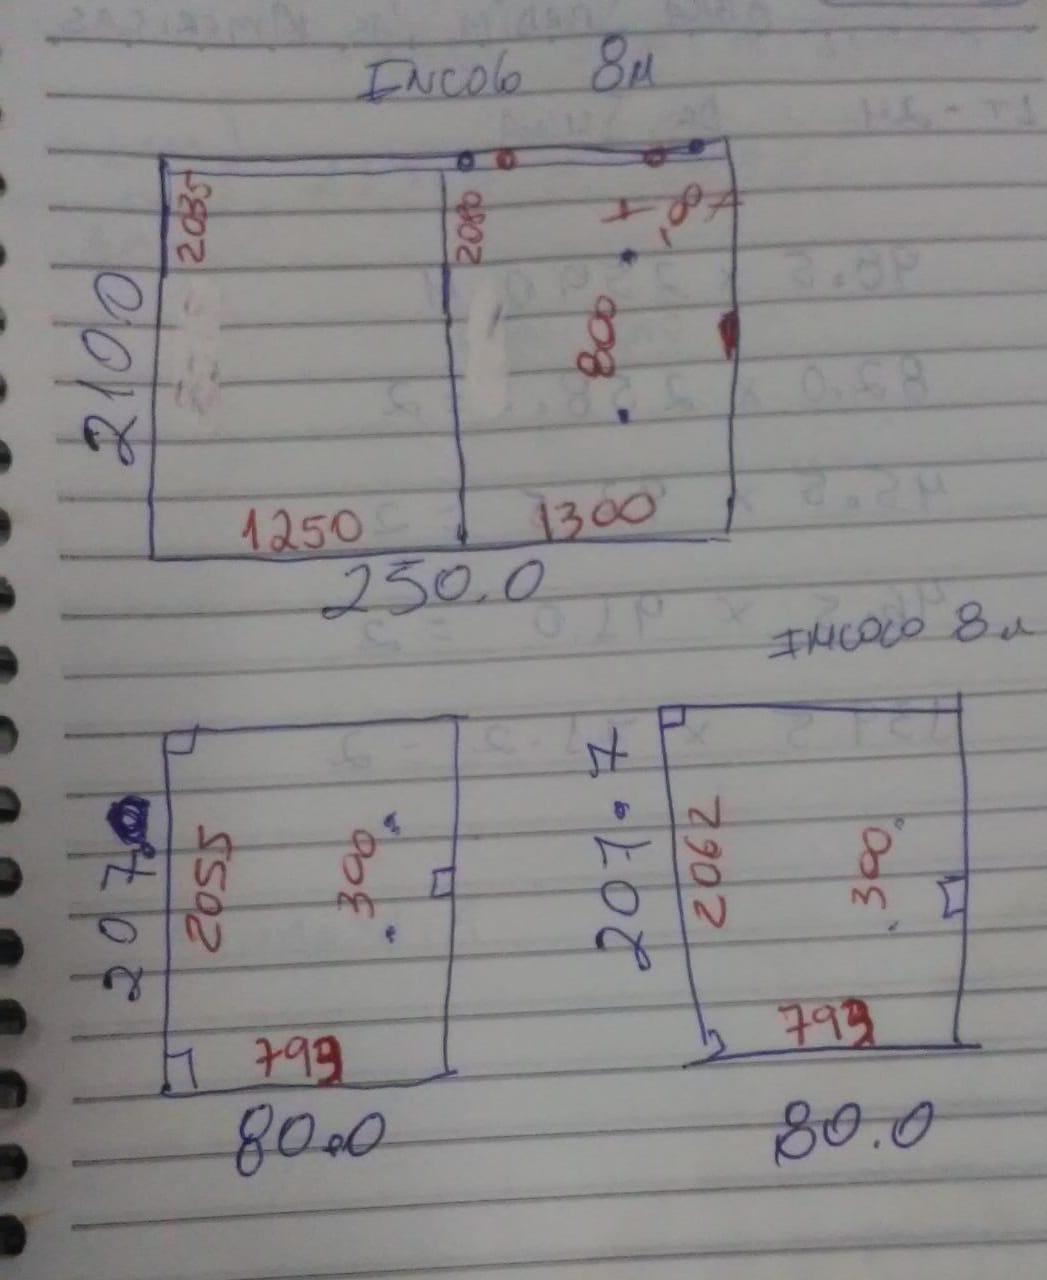 INCOLO 8M
2035
2080
8
210.0
800
1250
1300
250.0
INCOLO 8M
207
2055
300
793
80.0
207.7
2062
300
793
80.0